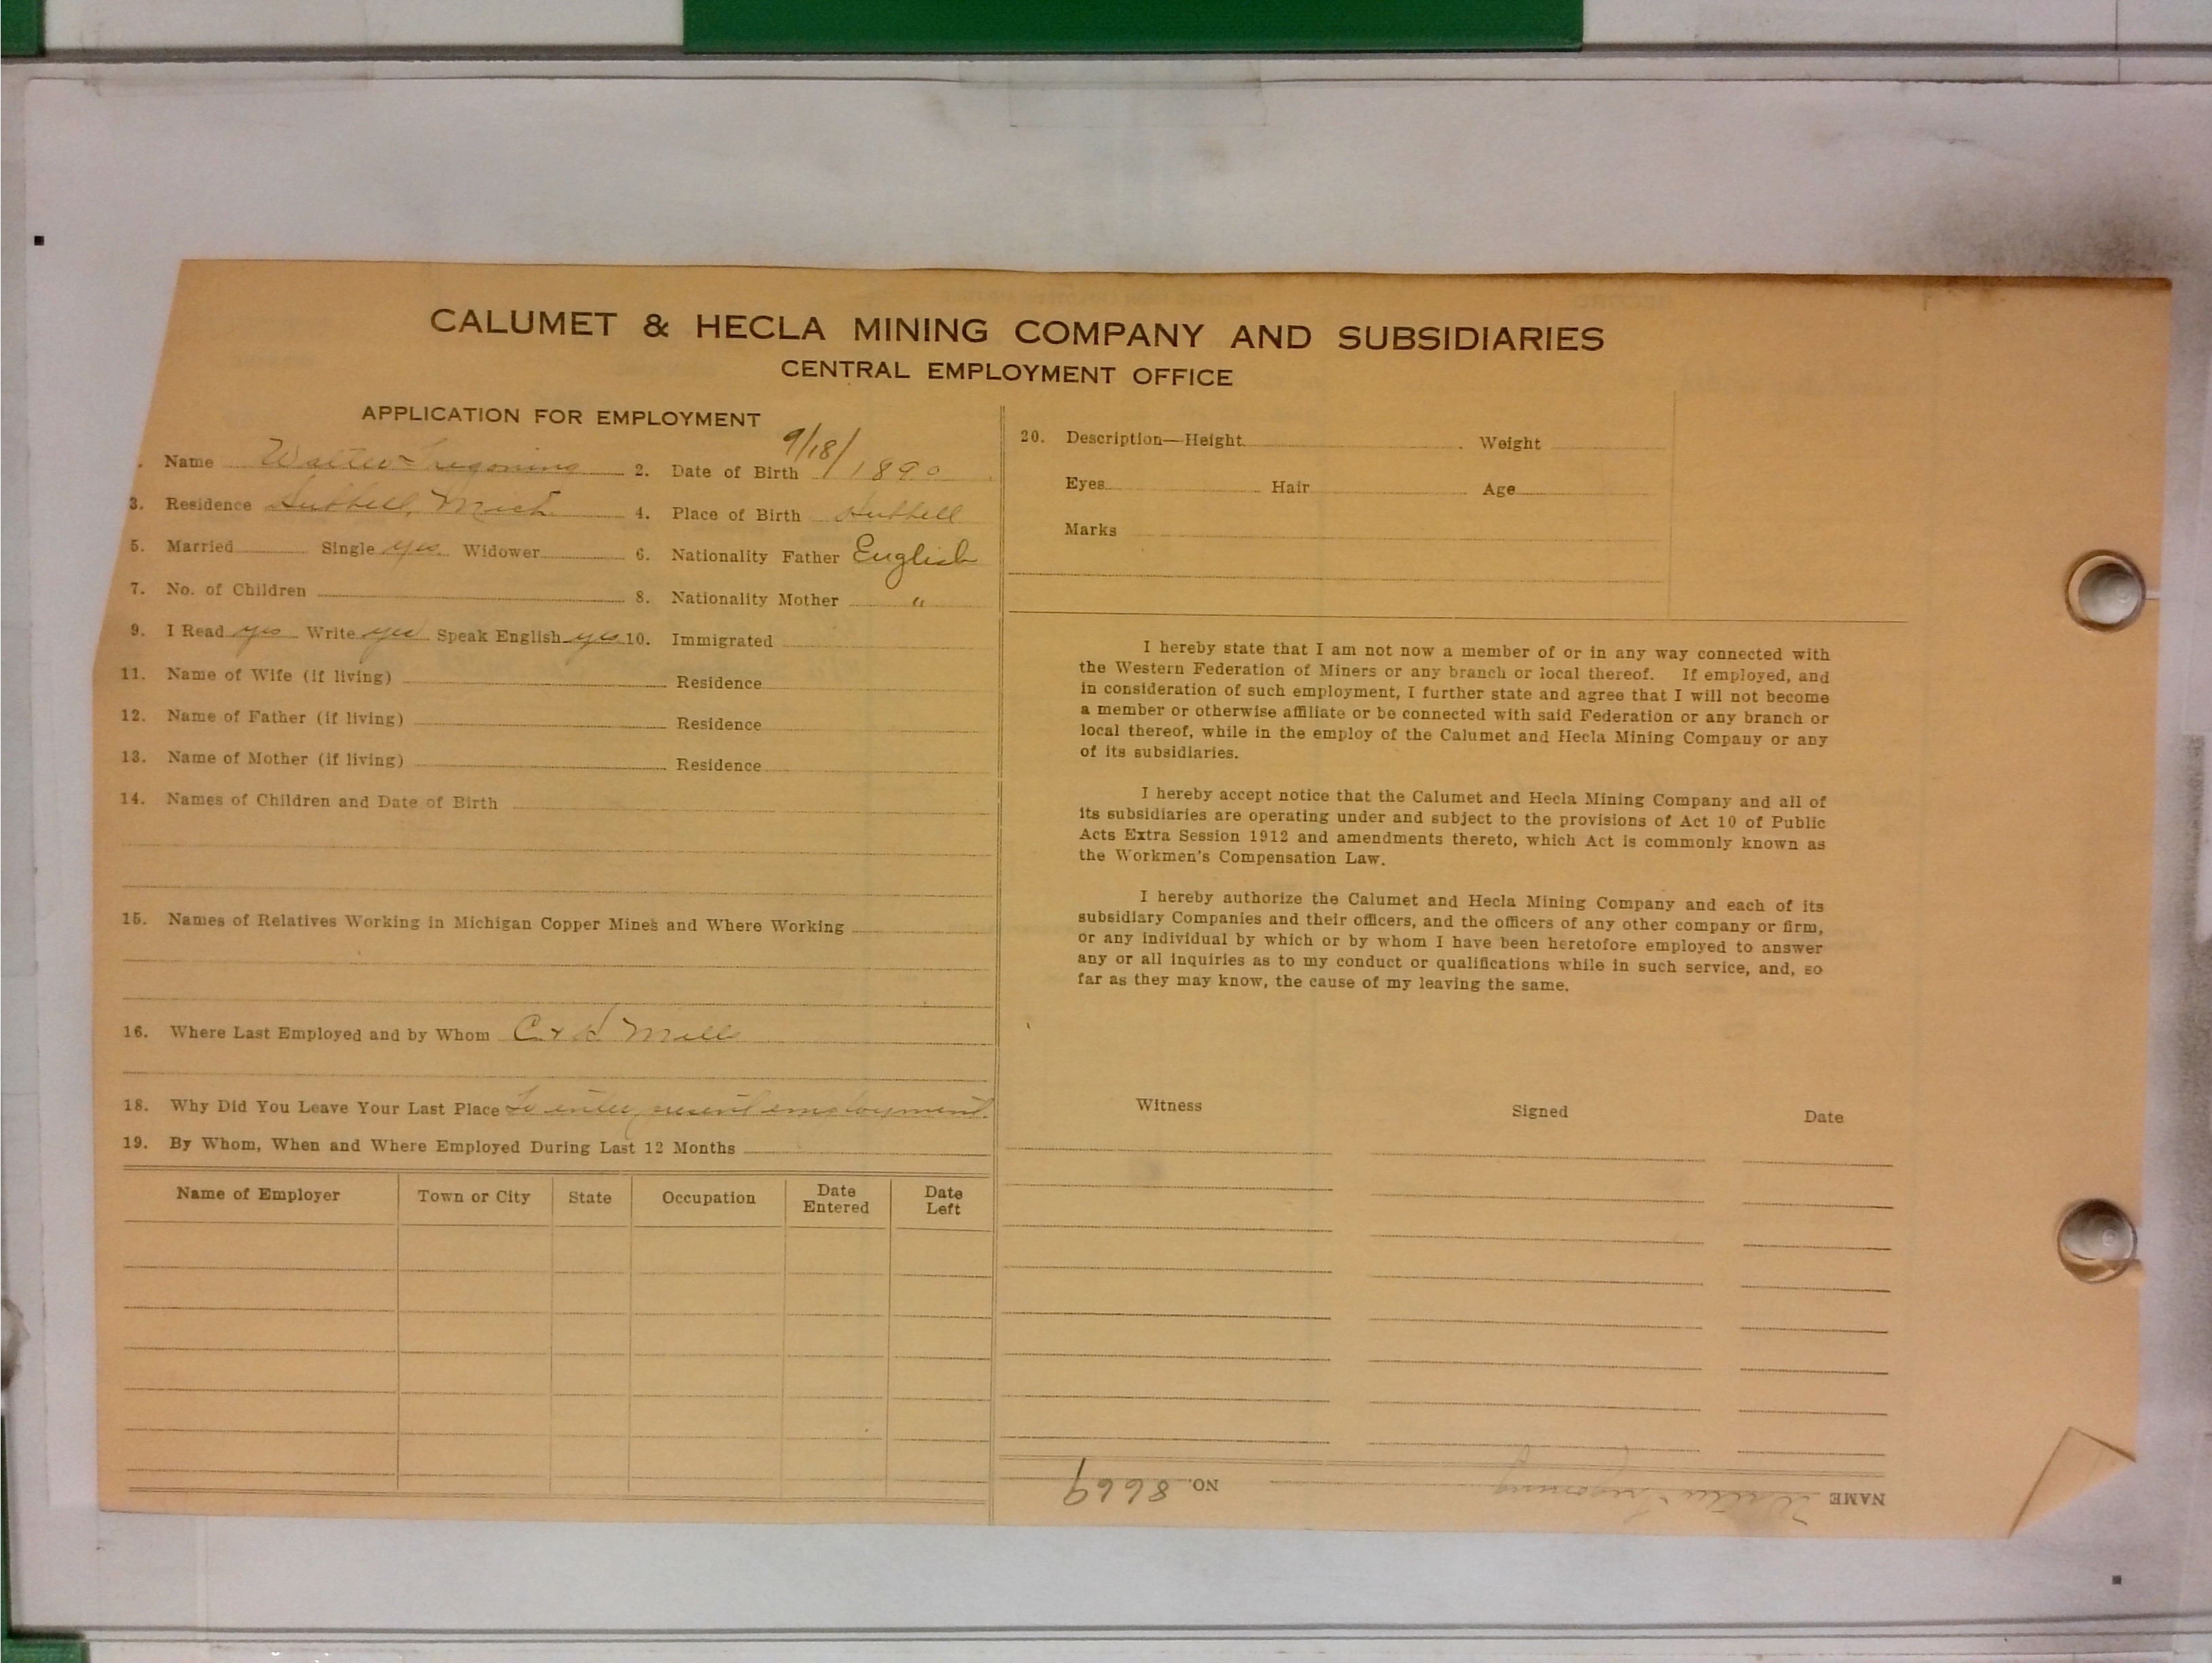 CALUMET & HECLA MINING COMPANY AND SUBSIDIARIES
CENTRAL EMPLOYMENT OFFICE
APPLICATION FOR EMPLOYMENT
. Name Walter Tregoning 2. Date of Birth 9/18/1890
3. Residence Hubbell, Mich. 4. Place of Birth Hubbell
5. Married Single yes Widower 6. Nationality Father English
7. No. of Children 8. Nationality Mother "
9. I Read yes Write yes Speak English yes 10. Immigrated
11. Name of Wife (if living) Residence
12. Name of Father (if living) Residence
13. Name of Mother (if living) Residence
14. Names of Children and Date of Birth
15. Names of Relatives Working in Michigan Copper Mines and Where Working
16. Where Last Employed and by Whom C & H Mill
18. Why Did You Leave Your Last Place To enter present employment.
19. By Whom, When and Where Employed During Last 12 Months
Name of Employer Town or City State Occupation Date Entered Date Left
20. Description—Height Weight
Eyes Hair Age
Marks
I hereby state that I am not now a member of or in any way connected with
the Western Federation of Miners or any branch or local thereof. If employed, and
in consideration of such employment, I further state and agree that I will not become
a member or otherwise affiliate or be connected with said Federation or any branch or
local thereof, while in the employ of the Calumet and Hecla Mining Company or any
of its subsidiaries.
I hereby accept notice that the Calumet and Hecla Mining Company and all of
its subsidiaries are operating under and subject to the provisions of Act 10 of Public
Acts Extra Session 1912 and amendments thereto, which Act is commonly known as
the Workmen's Compensation Law.
I hereby authorize the Calumet and Hecla Mining Company and each of its
subsidiary Companies and their officers, and the officers of any other company or firm,
or any individual by which or by whom I have been heretofore employed to answer
any or all inquiries as to my conduct or qualifications while in such service, and, so
far as they may know, the cause of my leaving the same.
Witness Signed Date
NAME Walter Tregoning NO. 8669